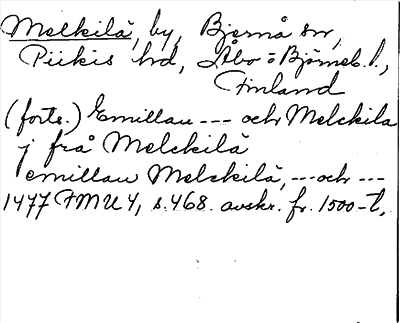 Melkilä, by, Bjernå sn,
Piikis hd, Åbo o Björneb. l.,
Finland
(forts.) Emillan --- och Melckila
j frå Melckilä
emillan Melckilä, --- och ---
1477 FMU 4, s. 468. avskr. fr. 1500-t.